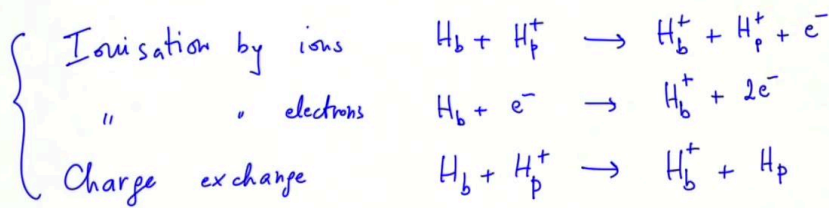 Ionisation by ions H_b + H_p^+ → H_b^+ + H_p^+ + e^-
" " electrons H_b + e^- → H_b^+ + 2e^-
Charge exchange H_b + H_p^+ → H_b^+ + H_p